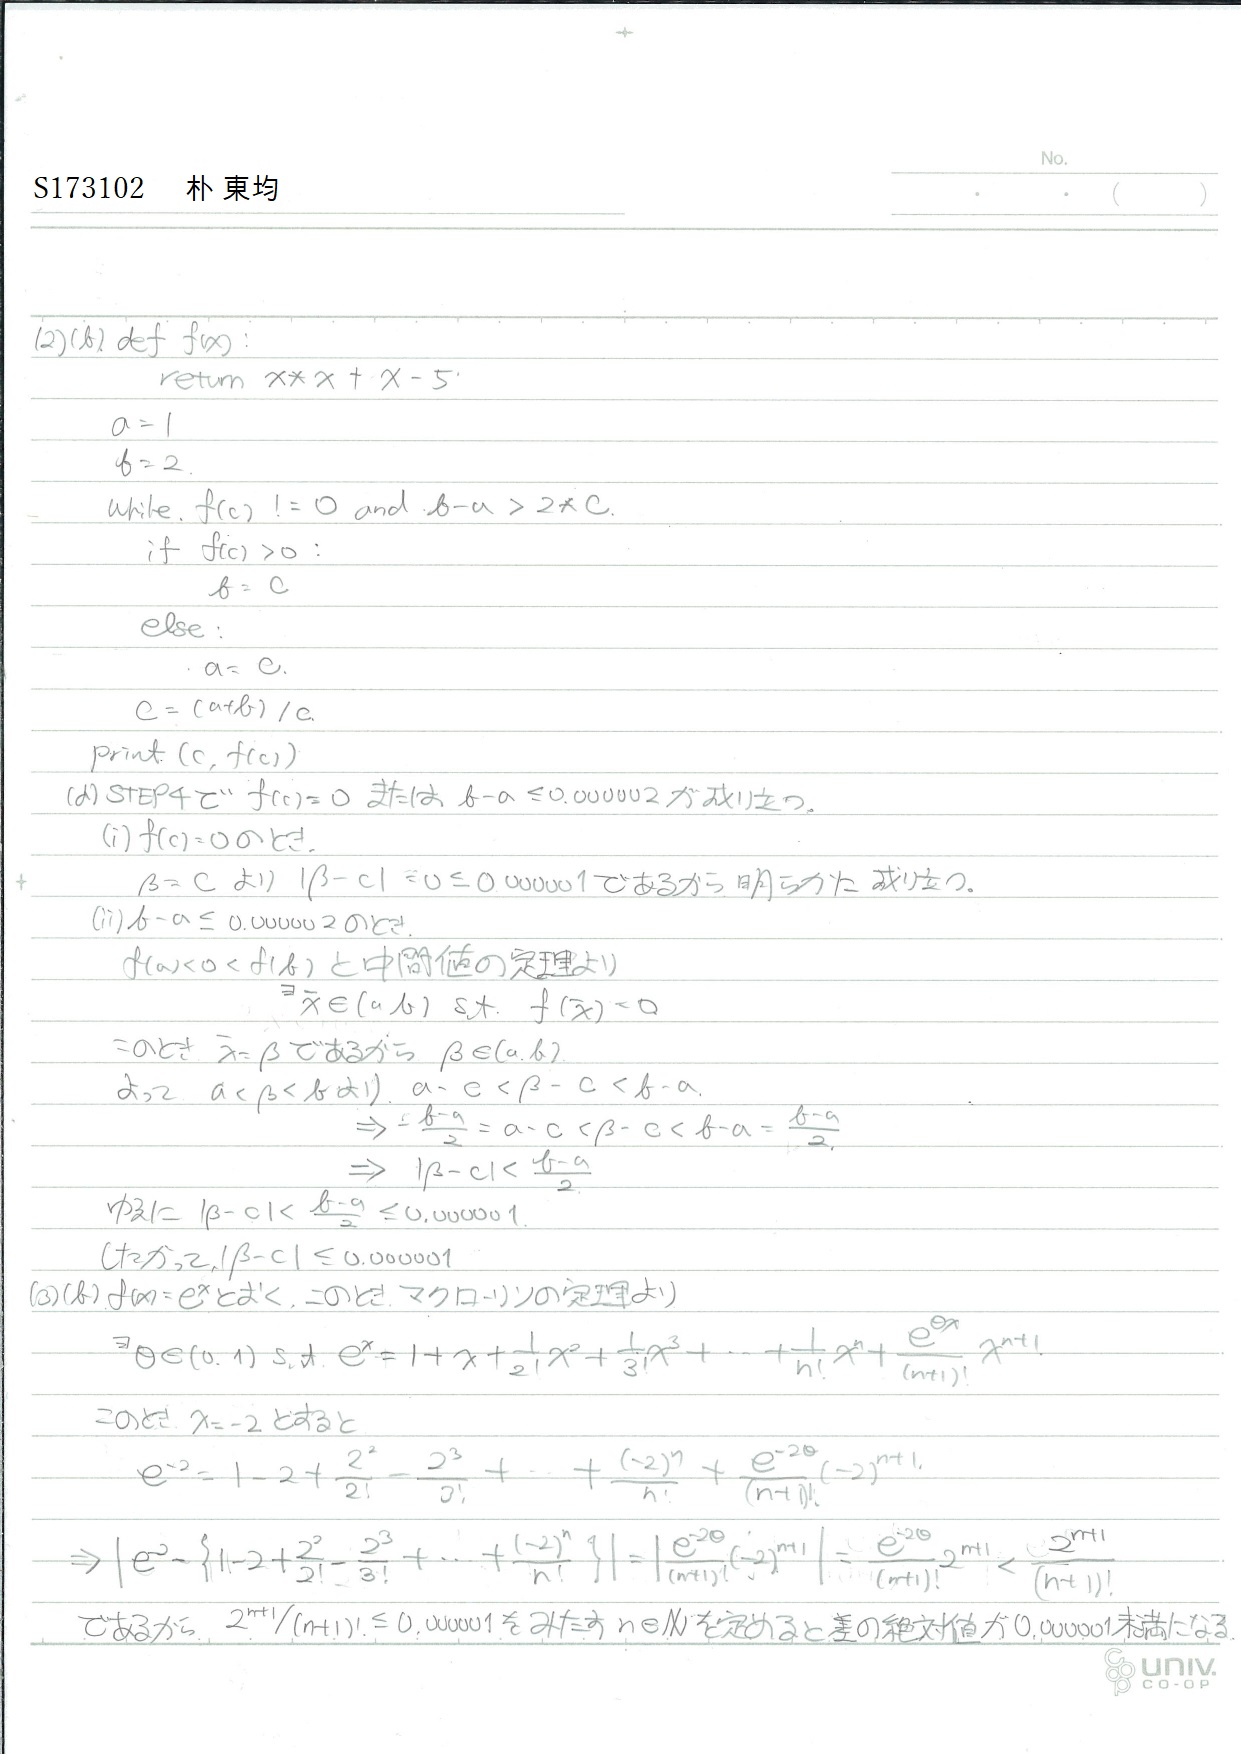 No.
S173102 朴 東均
・ ・ ( )
(2)(b) def f(x):
return x**x + x - 5
a = 1
b = 2.
while f(c) != 0 and b-a > 2*c.
if f(c) > 0 :
b = c
else :
a = c.
c = (a+b) / c.
print (c, f(c))
(d) STEP4で f(c)=0 または b-a ≤ 0.000002が成り立つ。
(i) f(c)=0のとき.
β=c より |β-c| = 0 ≤ 0.000001であるから 明らかに 成り立つ。
(ii) b-a ≤ 0.000002のとき.
f(a)<0<f(b) と中間値の定理より
∃x̄∈(a,b) s.t. f(x̄)=0
このとき x̄=βであるから β∈(a,b)
よって a<β<bより a-c<β-c<b-a.
⇒ -(b-a)/2 = a-c<β-c<b-a = (b-a)/2.
⇒ |β-c| < (b-a)/2
ゆえに |β-c| < (b-a)/2 ≤ 0.000001.
したがって, |β-c| ≤ 0.000001
(3)(b) f(x)=e^xとおく. このとき マクローリンの定理より
∃θ∈(0.1) s.t. e^x = 1+x+1/2! x^2+1/3! x^3+…+1/n! x^n+e^{θx}/(n+1)! x^{n+1}.
このとき x=-2とすると
e^{-2} = 1-2+2^2/2!-2^3/3!+…+(-2)^n/n!+e^{-2θ}/(n+1)! (-2)^{n+1}.
⇒ |e^{-2}-{1-2+2^2/2!-2^3/3!+…+(-2)^n/n!}| = |e^{-2θ}/(n+1)! (-2)^{n+1}| = e^{-2θ}/(n+1)! 2^{n+1} < 2^{n+1}/(n+1)!
であるから 2^{n+1}/(n+1)! ≤ 0.000001をみたす n∈ℕを定めると差の絶対値が0.000001未満になる
UNIV.
CO-OP